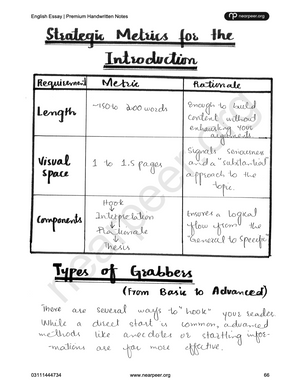 English Essay | Premium Handwritten Notes
nearpeer.org
Strategic Metrics for the
Introduction
Requirement Metric Rationale
Length ~150 to 200 words Enough to build
context without
exhausting your
arguments
Visual
space 1 to 1.5 pages Signals seriousness
and a "substantial
approach to the
topic.
Components Hook
Interpretation
Rationale
Thesis
Ensures a logical
flow from the
"General to Specific"
Types of Grabbers
(From Basic to Advanced)
There are several ways to "hook" your reader
While a direct start is common, advanced
methods like anecdotes or startling infor-
mations are far more effective.
nearpeer.org
03111444734 www.nearpeer.org 66